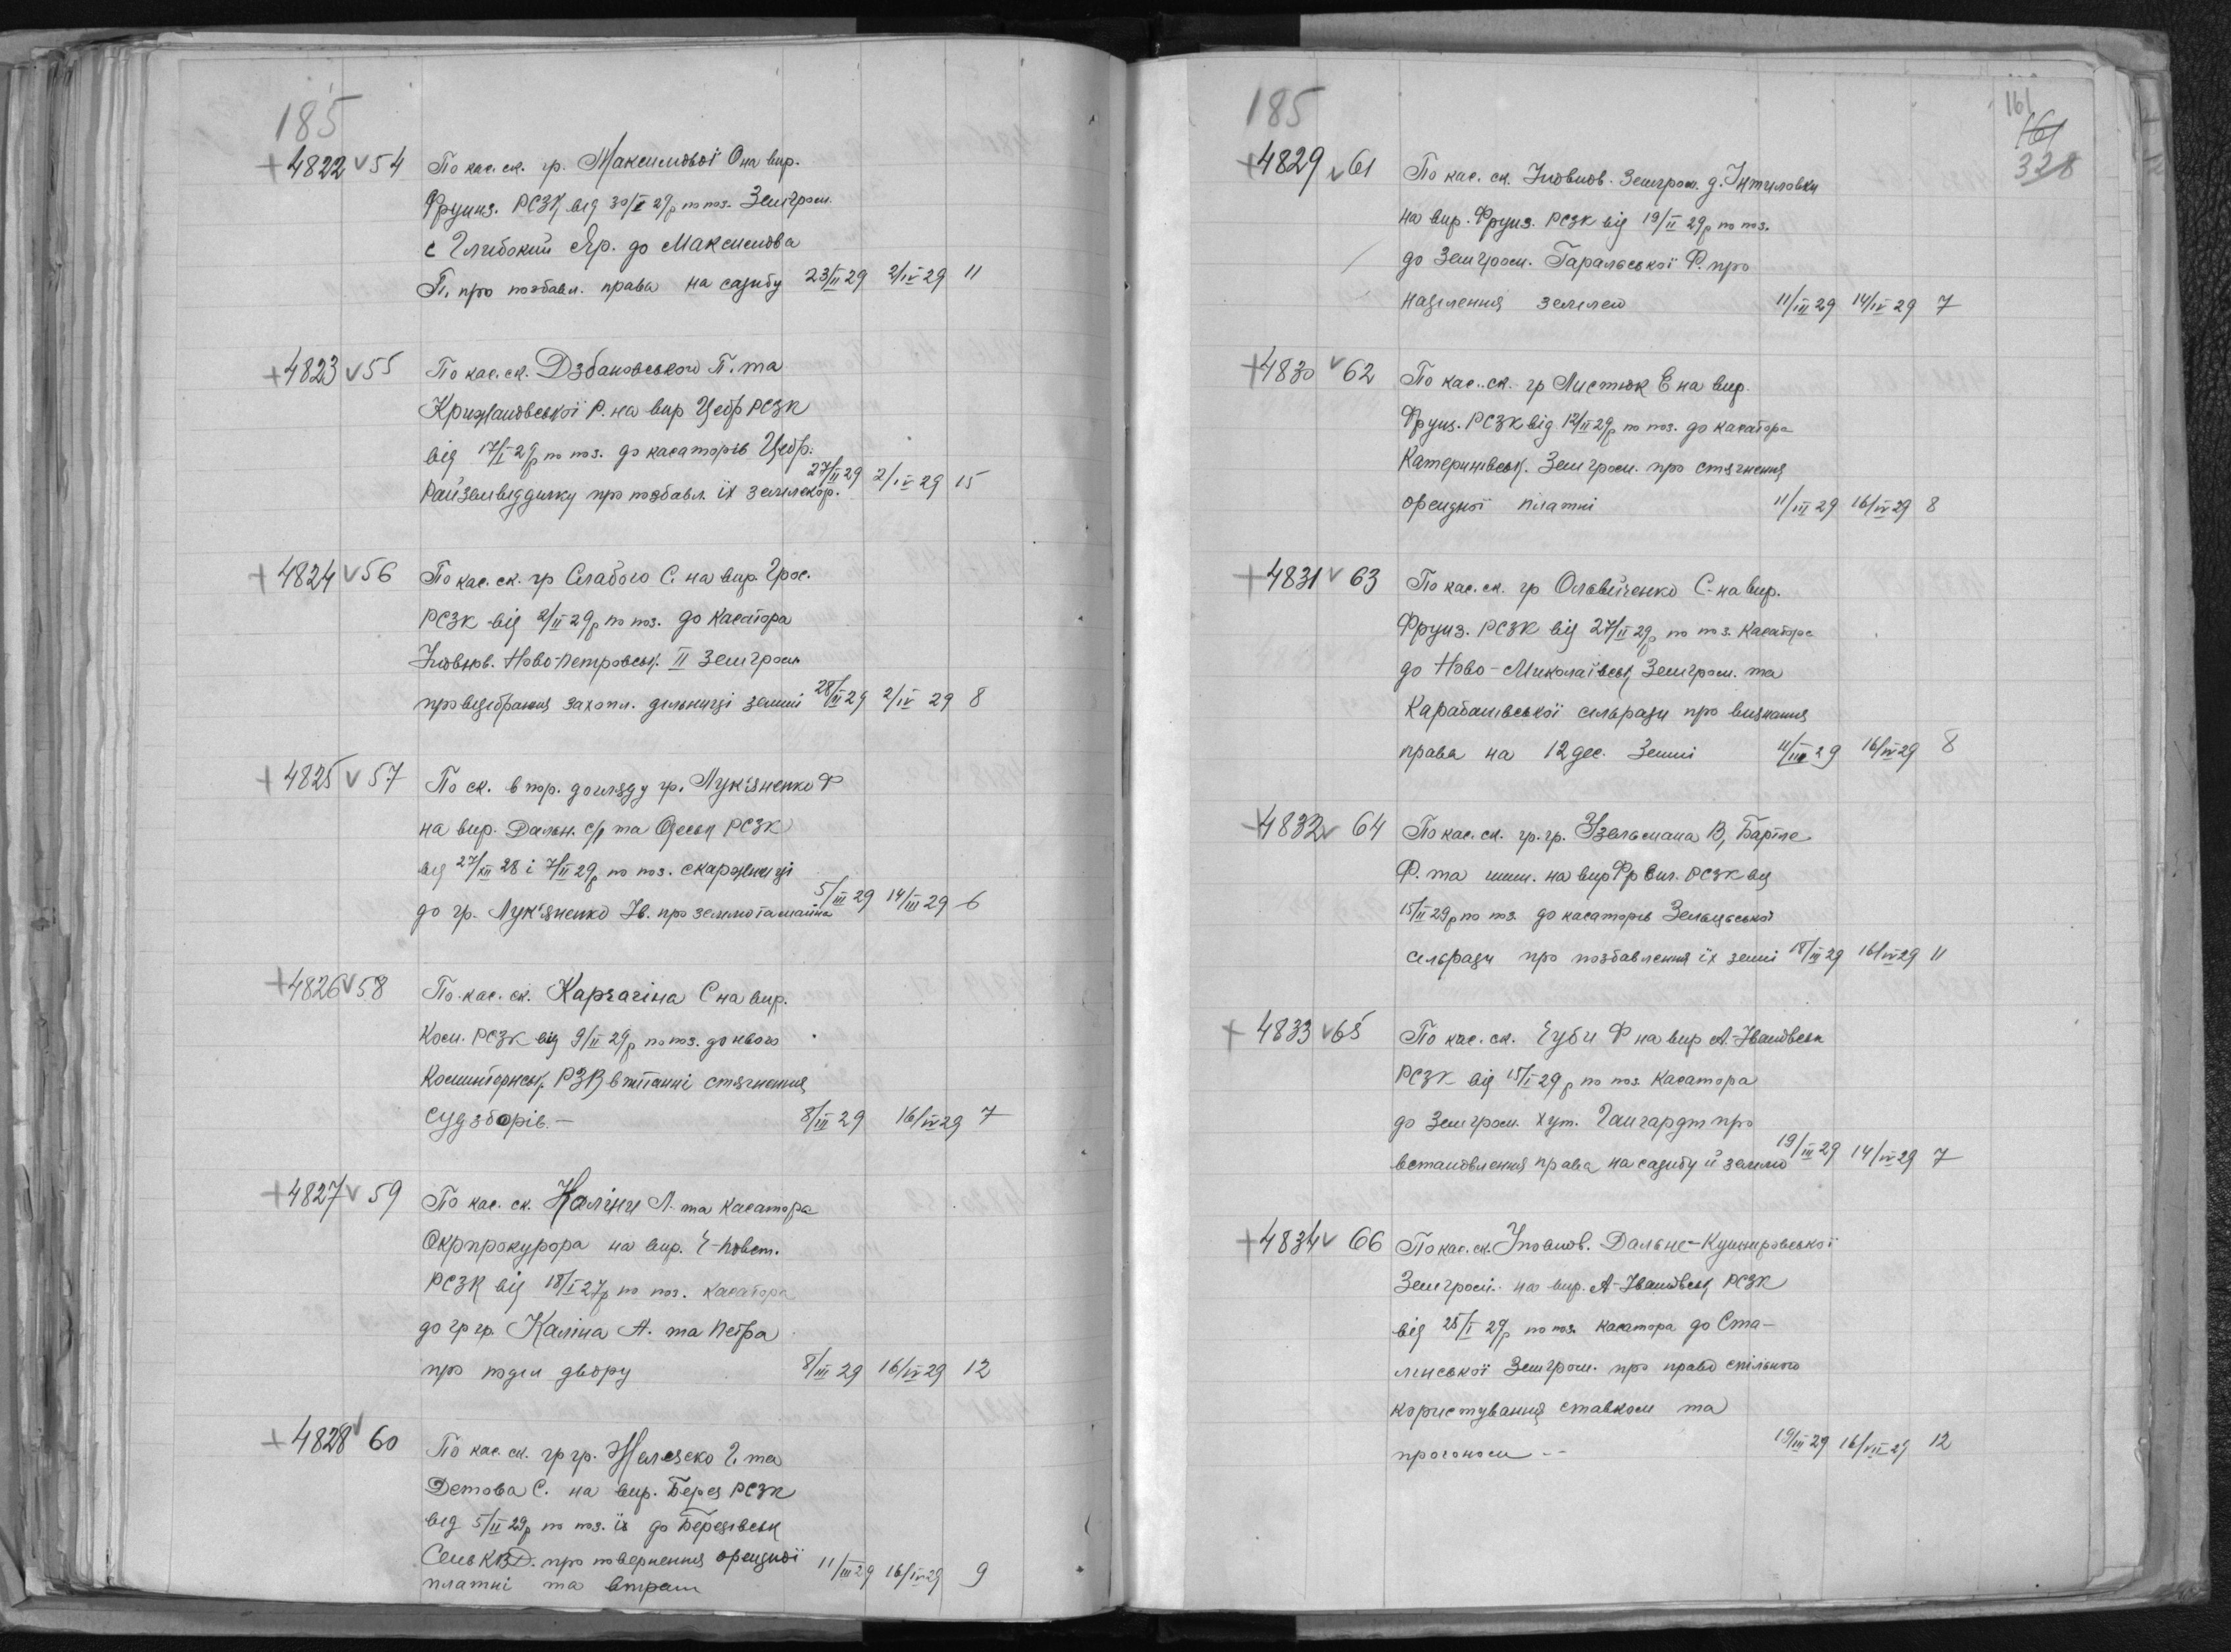 185
+ 4822 v 54 По кас. ск. гр. Максимової О на вир.
Фрунз. РСЗК від 30/I 29р по поз. Земгром.
с Глибокий Яр. до Максимова
П. про позбавл. права на садибу 23/II 29 2/IV 29 11
+ 4823 v 55 По кас. ск. Дзбановського П. та
Крижановської Р. на вир Цебр РСЗК
від 17/I 29р по поз. до касаторів Цебр.
Райземвідділку про позбавл. їх землекор. 27/II 29 2/IV 29 15
+ 4824 v 56 По кас. ск. гр Слабого С. на вир. Грос.
РСЗК від 2/II 29р по поз. до касатора
Ново-Петровськ. II Земгром
про відібрання захопл. дільниці землі 28/II 29 2/IV 29 8
+ 4825 v 57 По ск. в пор. догляду гр. Лук'яненко Ф
на вир. Дальн. с/р та Одеськ РСЗК
від 27/XII 28 і 7/II 29р по поз. скаржниці
до гр. Лук'яненко Ів. про землю та майна 5/III 29 14/III 29 6
+ 4826 v 58 По кас. ск. Карчагіна С на вир.
Ком. РСЗК від 9/II 29р по поз. до нього
Комінтернськ. РЗВ в питанні стягнення
судзборів. — 8/III 29 16/IV 29 7
+ 4827 v 59 По кас. ск. Каліни Л. та касатора
Окрпрокурора на вир. Г-Повст.
РСЗК від 18/I 27р по поз. касатора
до гр гр. Каліна А. та Петра
про поділ двору 8/III 29 16/IV 29 12
+ 4828 v 60 По кас. ск. гр гр. Г. та
Детова С. на вир. Берез РСЗК
від 5/II 29р по поз. їх до Березівськ
Сель КВД. про повернення орендної 11/III 29 16/IV 29 9
платні та втрат
185
161
161
328
+ 4829 v 61 По кас. ск. Уповнов. Земгром. д.
на вир. Фрунз. РСЗК від 19/II 29р по поз.
до Земгром. Гаральської Ф. про
наділення землею 11/III 29 14/IV 29 7
+ 4830 v 62 По кас. ск. гр Листюк Е на вир.
Фрунз. РСЗК від 12/II 29р по поз. до касатора
Катеринівськ. Земгром. про стягнення
орендної платні 11/III 29 16/IV 29 8
+ 4831 v 63 По кас. ск. гр Ольвіченко С. на вир.
Фрунз. РСЗК від 27/II 29р по поз. касатора
до Ново-Миколаївськ Земгром. та
Карабанівської сільради про визнання
права на 12 дес. Землі 11/III 29 16/IV 29 8
+ 4832 v 64 По кас. ск. гр. гр. Узельмана В, Бартле
Ф. та инш. на вир Фр Енг. РСЗК від
15/II 29р по поз. до касаторів Зельцьської
сільради про позбавлення їх землі 18/III 29 16/IV 29 11
+ 4833 v 65 По кас. ск. Губи Ф на вир А-Іванівськ
РСЗК від 15/I 29р по поз. касатора
до Земгром. хут. Гангардт про
встановлення права на садибу й землю 19/III 29 14/IV 29 7
+ 4834 v 66 По кас. ск. Уповнов. Дальне-Кушніровської
Земгром. на вир. А-Іванівськ РСЗК
від 25/I 29р по поз. касатора до Ста-
лінської Земгром. про право спільного
користування ставком та
прогоном -- 19/III 29 16/VII 29 12